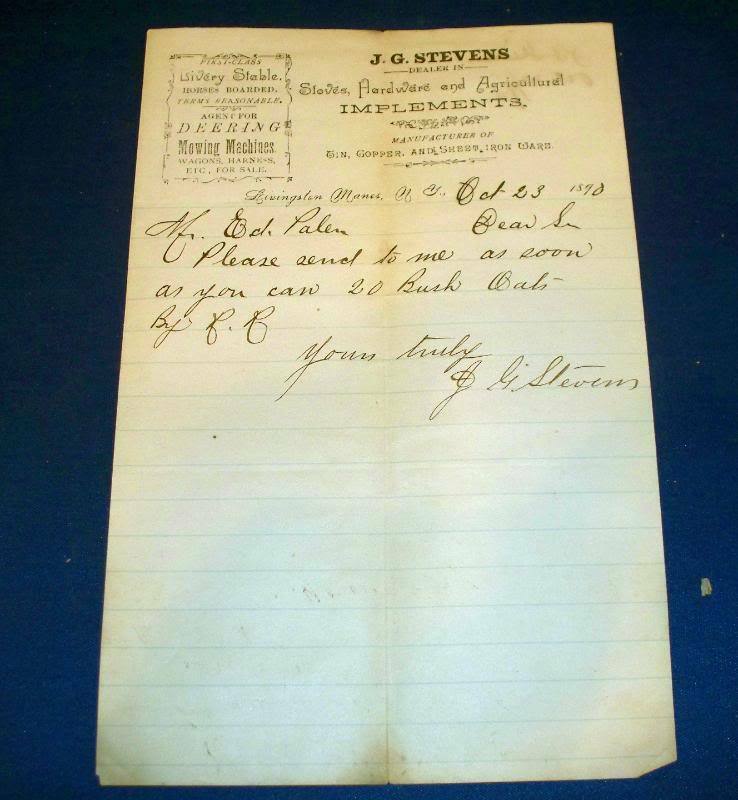 FIRST-CLASS
Livery Stable.
HORSES BOARDED.
TERMS REASONABLE.
AGENT FOR
DEERING
Mowing Machines.
WAGONS, HARNESS,
ETC., FOR SALE.
J. G. STEVENS
DEALER IN
Stoves, Hardware and Agricultural
IMPLEMENTS.
MANUFACTURER OF
TIN, COPPER, AND SHEET IRON WARE.
Livingston Manor, N. Y., Oct 23 1890
Mr. Ed. Palen Dear Sir
Please send to me as soon
as you can 20 Bush Oats
By R. R
Yours truly
J G Stevens